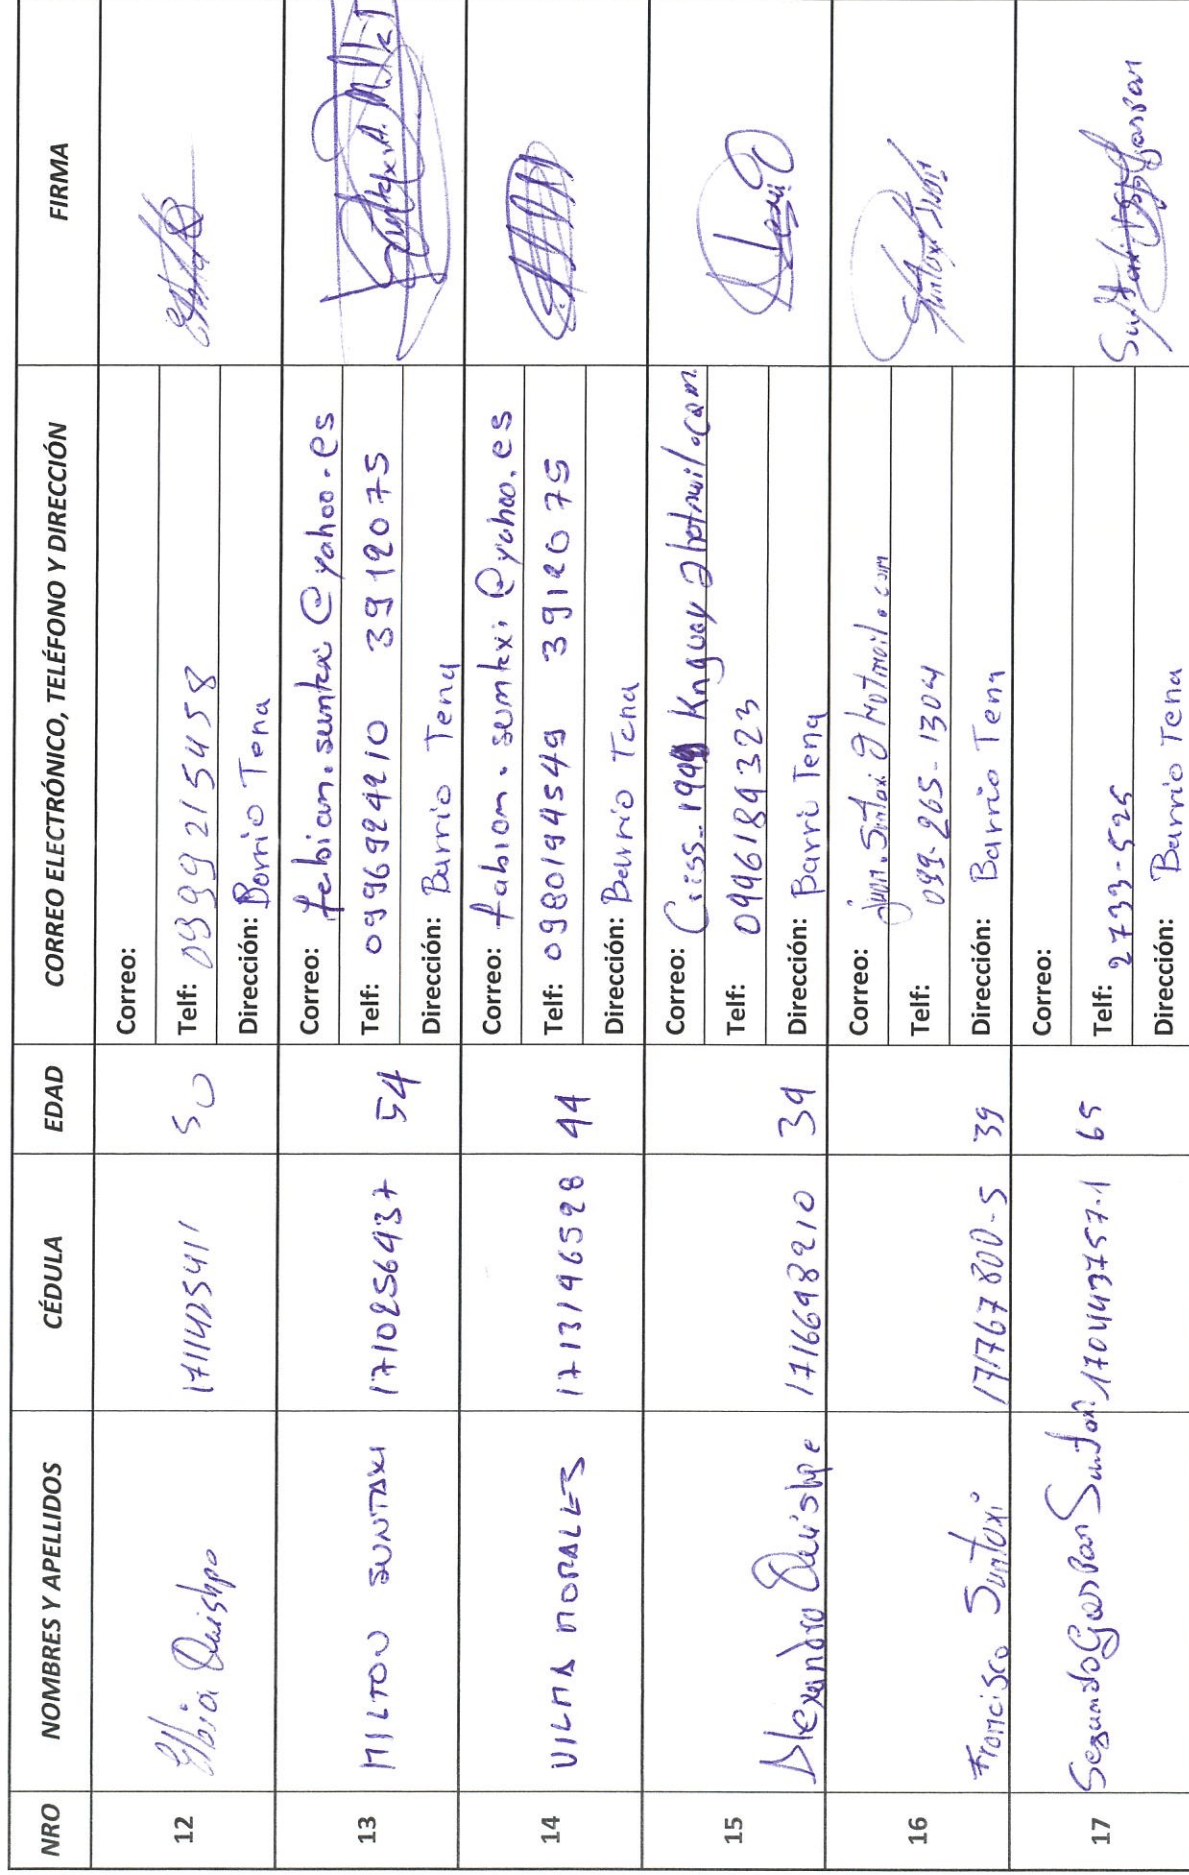 NRO NOMBRES Y APELLIDOS CÉDULA EDAD CORREO ELECTRÓNICO, TELÉFONO Y DIRECCIÓN FIRMA
12 Elbia Quishpe 1711425411 50
Correo:
Telf: 0999215458
Dirección: Borrio Tena
13 MILTON SUNTAXI 1710256437 54
Correo: fabian.suntaxi@yahoo.es
Telf: 0996924210 3912075
Dirección: Barrio Tena
14 VILMA MORALES 1713196528 44
Correo: fabian.suntaxi@yahoo.es
Telf: 0980194549 3912075
Dirección: Barrio Tena
15 Alexandra Quishpe 1716698210 39
Correo:
Telf: 0996189323
Dirección: Barri Tena
Alexa Q
16 Francisco Suntaxi 171767800-5 39
Correo: juan.Suntaxi@Hotmail.com
Telf: 099-265-1304
Dirección: Barrio Tena
17 Segundo Gaspar Suntaxi 170443757-1 65
Correo:
Telf: 2733-525
Dirección: Barrio Tena